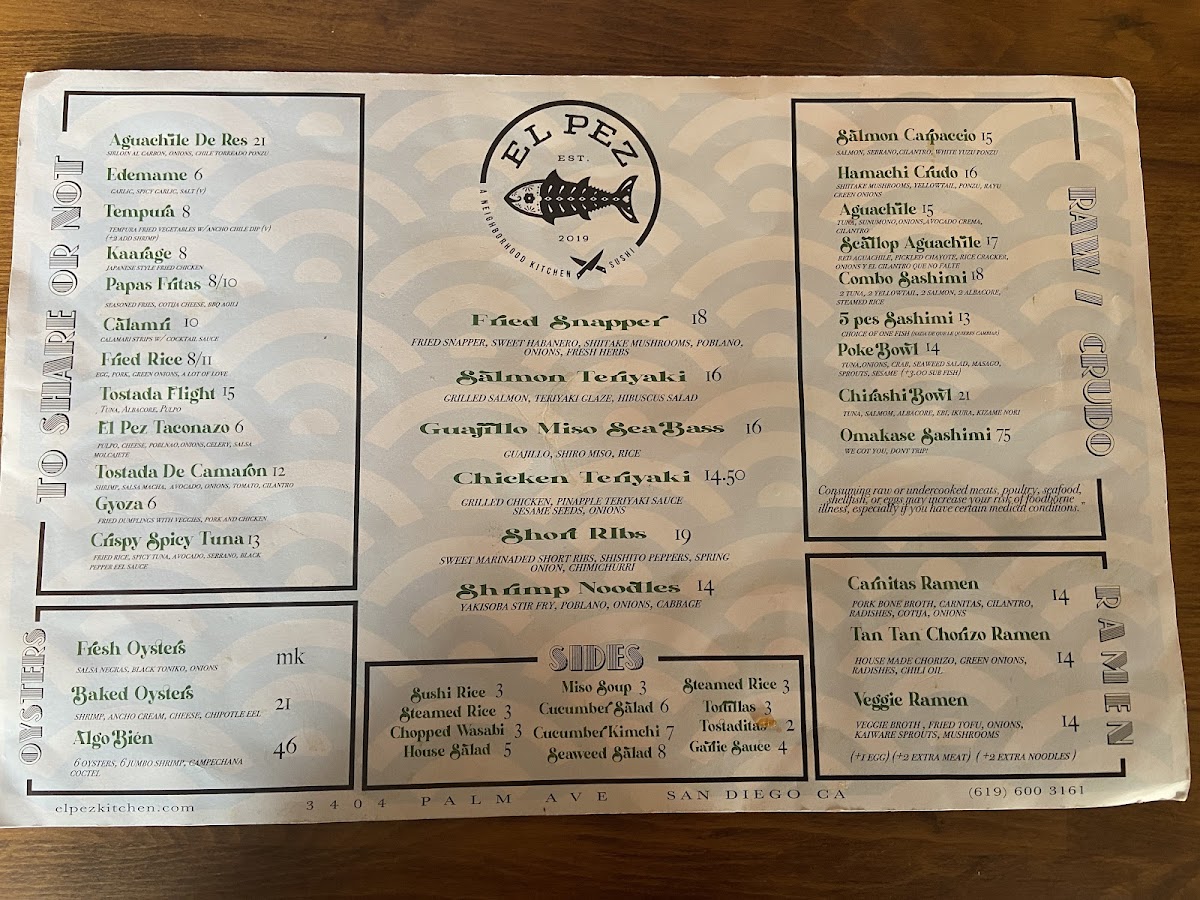 TO SHARE OR NOT
Aguachile De Res 21
SIRLOIN AL CARBON, ONIONS, CHILE TOREADO PONZU
Edemame 6
GARLIC, SPICY GARLIC, SALT (V)
Tempura 8
TEMPURA FRIED VEGETABLES W/ANCHO CHILE DIP (V)
(+2 ADD SHRIMP)
Kaarage 8
JAPANESE STYLE FRIED CHICKEN
Papas Fritas 8/10
SEASONED FRIES, COTIJA CHEESE, BBQ AOILI
Calamri 10
CALAMARI STRIPS W/ COCKTAIL SAUCE
Fried Rice 8/11
EGG, PORK, GREEN ONIONS, A LOT OF LOVE
Tostada Flight 15
TUNA, ALBACORE, PULPO
El Pez Taconazo 6
PULPO, CHEESE, POBLNAO, ONIONS, CELERY, SALSA
MOLCAJETE
Tostada De Camaron 12
SHRIMP, SALSA MACHA, AVOCADO, ONIONS, TOMATO, CILANTRO
Gyoza 6
FRIED DUMPLINGS WITH VEGGIES, PORK AND CHICKEN
Crispy Spicy Tuna 13
FRIED RICE, SPICY TUNA, AVOCADO, SERRANO, BLACK
PEPPER EEL SAUCE
OYSTERS
Fresh Oysters mk
SALSA NEGRAS, BLACK TONIKO, ONIONS
Baked Oysters 21
SHRIMP, ANCHO CREAM, CHEESE, CHIPOTLE EEL
Algo Bien 46
6 OYSTERS, 6 JUMBO SHRIMP, CAMPECHANA
COCTEL
EL PEZ
EST.
2019
A NEIGHBORHOOD KITCHEN SUSHI
Fried Snapper 18
FRIED SNAPPER, SWEET HABANERO, SHIITAKE MUSHROOMS, POBLANO,
ONIONS, FRESH HERBS
Salmon Teriyaki 16
GRILLED SALMON, TERIYAKI GLAZE, HIBUSCUS SALAD
Guajillo Miso SeaBass 16
GUAJILLO, SHIRO MISO, RICE
Chicken Teriyaki 14.50
GRILLED CHICKEN, PINAPPLE TERIYAKI SAUCE
SESAME SEEDS, ONIONS
Short RIbs 19
SWEET MARINADED SHORT RIBS, SHISHITO PEPPERS, SPRING
ONION, CHIMICHURRI
Shrimp Noodles 14
YAKISOBA STIR FRY, POBLANO, ONIONS, CABBAGE
SIDES
Sushi Rice 3
Steamed Rice 3
Chopped Wasabi 3
House Salad 5
Miso Soup 3
Cucumber Salad 6
Cucumber Kimchi 7
Seaweed Salad 8
Steamed Rice 3
Tortillas 3
Tostaditas 2
Garlic Sauce 4
RAW / CRUDO
Salmon Carpaccio 15
SALMON, SERRANO, CILANTRO, WHITE YUZU PONZU
Hamachi Crudo 16
SHIITAKE MUSHROOMS, YELLOWTAIL, PONZU, RAYU
GREEN ONIONS
Aguachile 15
TUNA, SUNUMONO, ONIONS, AVOCADO CREMA,
CILANTRO
Scallop Aguachile 17
RED AGUACHILE, PICKLED CHAYOTE, RICE CRACKER,
ONIONS Y EL CILANTRO QUE NO FALTE
Combo Sashimi 18
2 TUNA, 2 YELLOWTAIL, 2 SALMON, 2 ALBACORE,
STEAMED RICE
5 pcs Sashimi 13
CHOICE OF ONE FISH (NADA DE QUE LE QUIERES CAMBIAR)
Poke Bowl 14
TUNA, ONIONS, CRAB, SEAWEED SALAD, MASAGO,
SPROUTS, SESAME (+3.00 SUB FISH)
Chirashi Bowl 21
TUNA, SALMOM, ALBACORE, EBI, IKURA, KIZAME NORI
Omakase Sashimi 75
WE GOT YOU, DONT TRIP!
Consuming raw or undercooked meats, poultry, seafood,
shellfish, or eggs may increase your risk of foodborne
illness, especially if you have certain medical conditions."
RAMEN
Carnitas Ramen 14
PORK BONE BROTH, CARNITAS, CILANTRO,
RADISHES, COTIJA, ONIONS
Tan Tan Chorizo Ramen 14
HOUSE MADE CHORIZO, GREEN ONIONS,
RADISHES, CHILI OIL
Veggie Ramen 14
VEGGIE BROTH, FRIED TOFU, ONIONS,
KAIWARE SPROUTS, MUSHROOMS
(+1 EGG) (+2 EXTRA MEAT) (+2 EXTRA NOODLES)
elpezkitchen.com 3404 PALM AVE SAN DIEGO CA (619) 600 3161